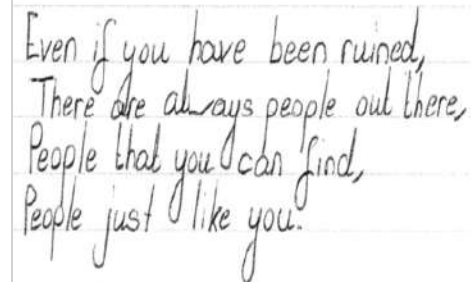 Even if you have been ruined,
There are always people out there,
People that you can find,
People just like you.